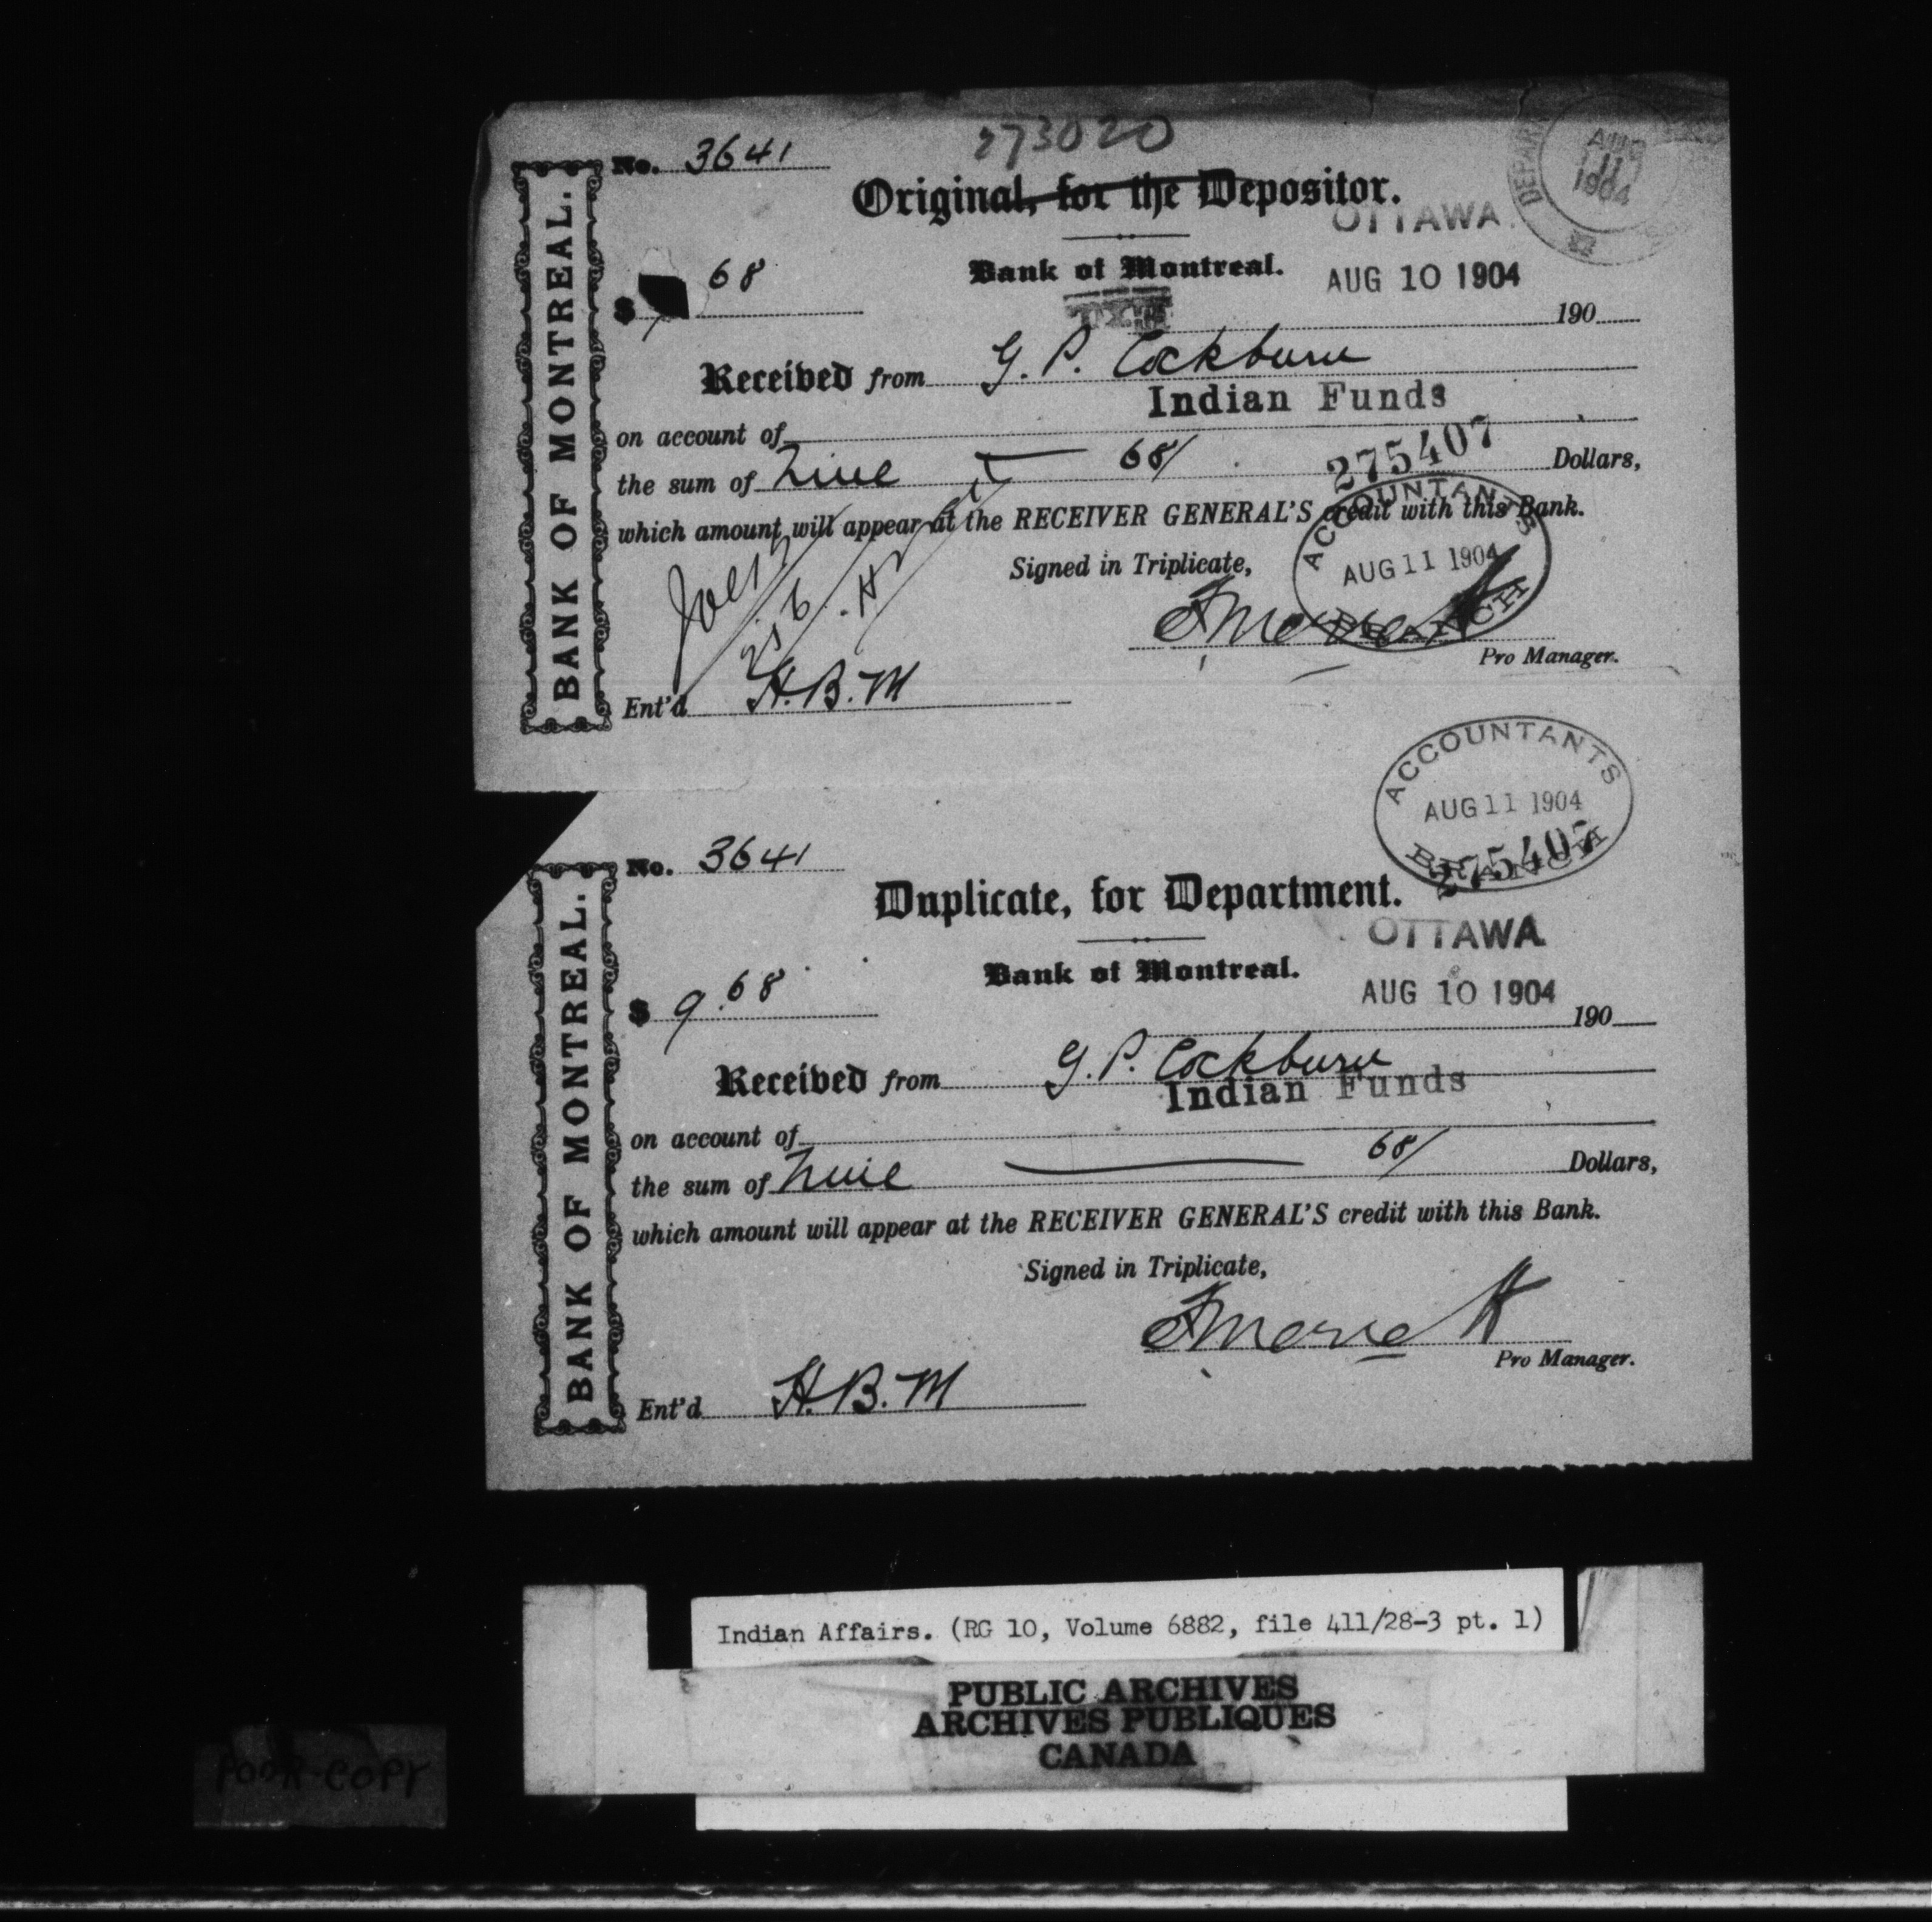 273020
No. 3641
Original, for the Depositor.
AUG 11 1904
OTTAWA
BANK OF MONTREAL.
$ 68
Bank of Montreal.
AUG 10 1904
190
Received from G. P. Cockburn
Indian Funds
on account of
the sum of Nine 68/ Dollars,
275407
which amount will appear at the RECEIVER GENERAL'S credit with this Bank.
ACCOUNTANTS
AUG 11 1904
BRANCH
Signed in Triplicate,
Pro Manager.
Ent'd H.B.M
ACCOUNTANTS
AUG 11 1904
BRANCH
275407
No. 3641
Duplicate, for Department.
OTTAWA
BANK OF MONTREAL.
Bank of Montreal.
$ 9.68
AUG 10 1904
190
Received from G. P. Cockburn
Indian Funds
on account of
the sum of Nine 68/ Dollars,
which amount will appear at the RECEIVER GENERAL'S credit with this Bank.
Signed in Triplicate,
Pro Manager.
Ent'd H.B.M
Indian Affairs. (RG 10, Volume 6882, file 411/28-3 pt. 1)
PUBLIC ARCHIVES
ARCHIVES PUBLIQUES
CANADA
POOR COPY